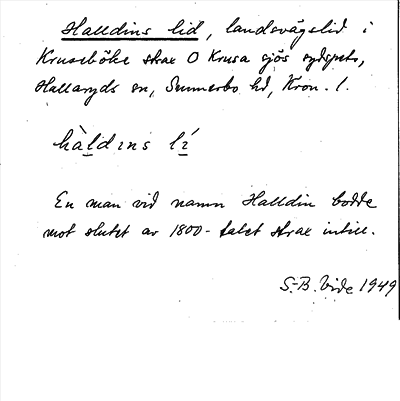 Halldins lid, landsvägslid i
Kruseböke strax O Krusa sjös sydspets,
Hallaryds sn, Sunnerbo hd, Kron. l.
hàldɪns lí
En man vid namn Halldin bodde
mot slutet av 1800-talet strax intill.
S.-B. Vide 1949